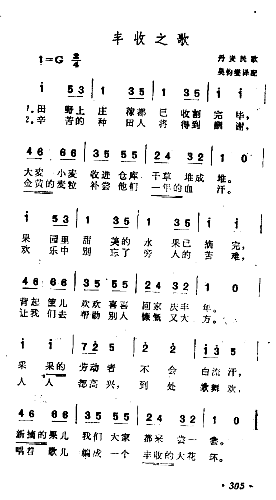 丰收之歌
1=G 2/4
丹麦民歌
吴钧燮译配
i 53 | 1 35 | i 53 | 1 35
1.田 野上 庄 稼都 已 收割 完毕,
2.辛 苦的 种 田人 将 得到 酬谢,
46 66 | 35 55 | 24 32 | 1 0
大麦 小麦 收进 仓库 干草 堆成 堆。
金黄的 麦粒 补尝 他们 一年的 血 汗。
i 53 | 1 35 | i 53 | 1 35
果 园里 甜 美的 水 果已 摘完,
欢 乐中 别 忘了 旁 人的 苦难,
46 66 | 35 55 | 24 32 | 1 0
背起 筐儿 欢欢 喜喜 回家 庆丰 年。
让我 们去 帮助 别人 慷慨 又大 方。
果 果的 劳动 者 不 会 白流 汗,
人 人 都高 兴, 到 处 歌舞 欢,
46 66 | 35 55 | 24 32 | 1 0
新摘的 果儿 我们 大家 都来 尝一 尝。
唱着 歌儿 编成 一个 丰收的 大花 环。
· 305 ·